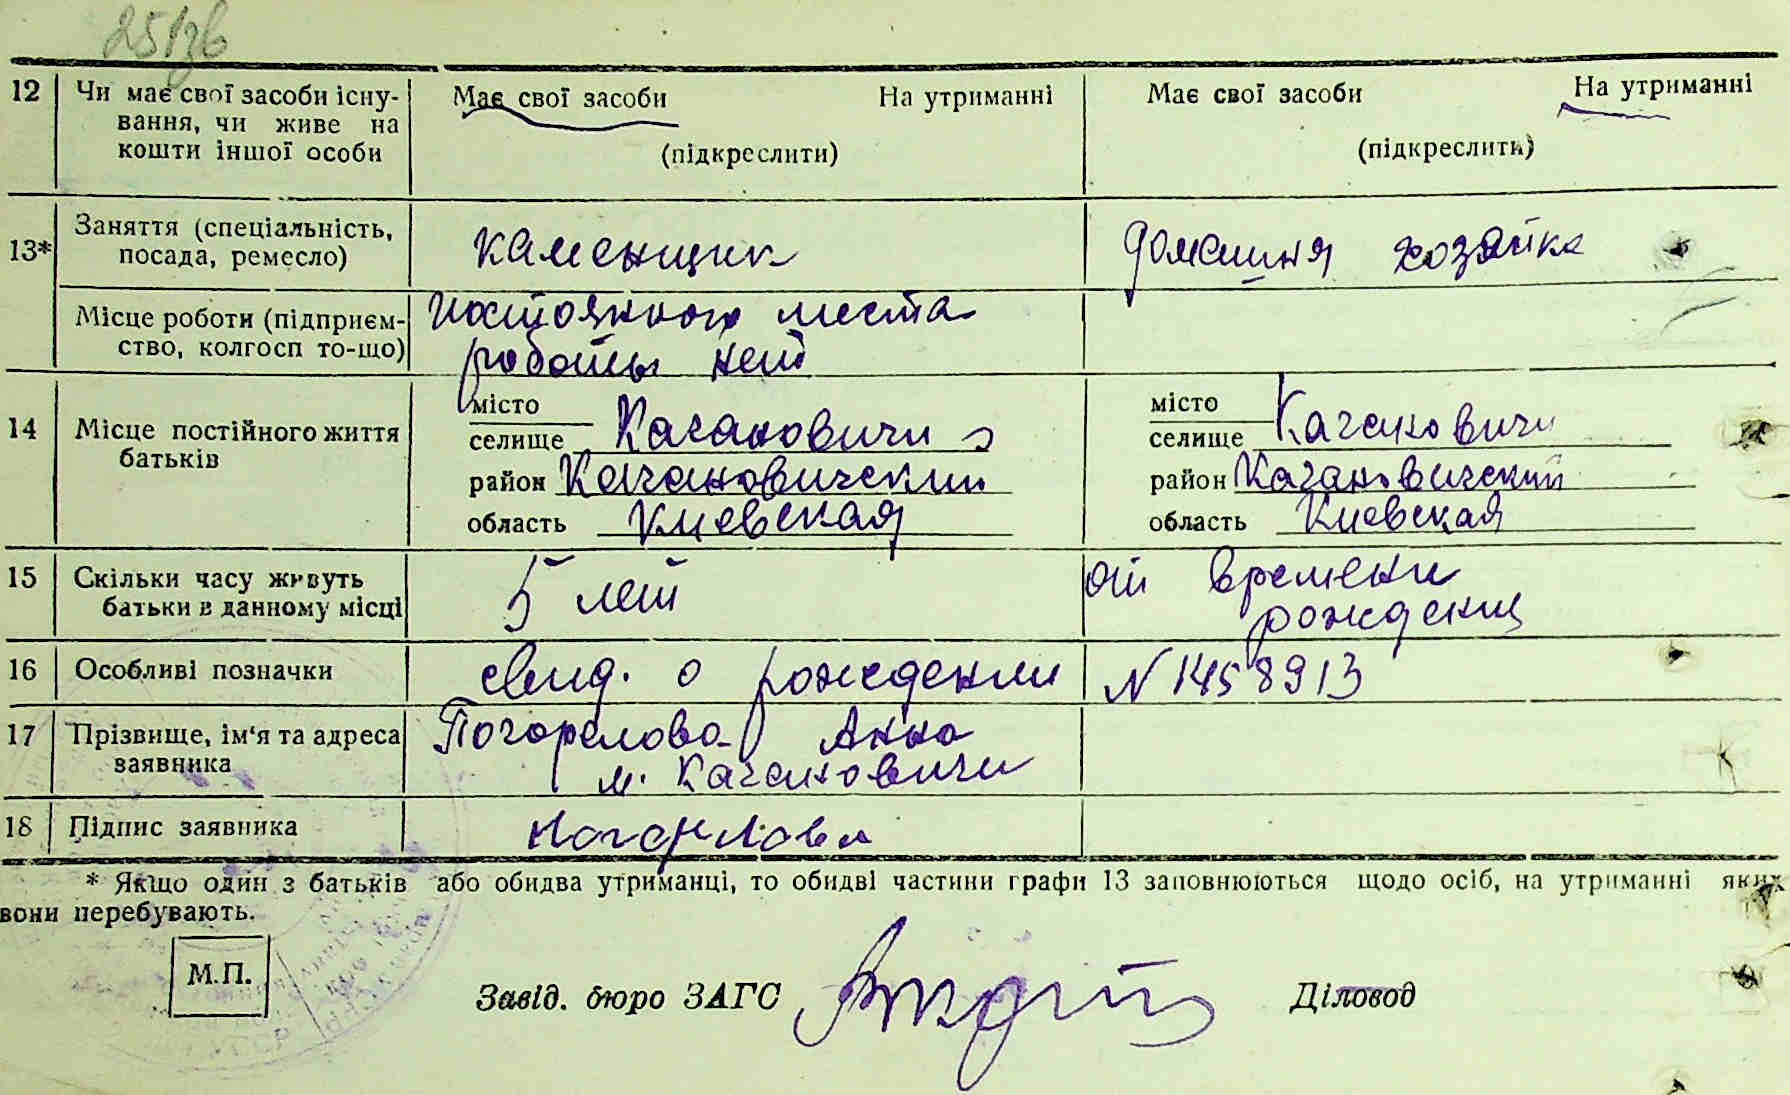 251зв
12 Чи має свої засоби існу-
вання, чи живе на
кошти іншої особи
Має свої засоби На утриманні
(підкреслити)
Має свої засоби На утриманні
(підкреслити)
13* Заняття (спеціальність,
посада, ремесло)
каменщик
домашня хозяйка
Місце роботи (підприєм-
ство, колгосп то-що)
постоянного места
работы нет
14 Місце постійного життя
батьків
місто
селище Кагановичи
район Кагановичский
область Киевская
місто
селище Кагановичи
район Кагановичский
область Киевская
15 Скільки часу живуть
батьки в данному місці
5 лет
от времени
рождения
16 Особливі позначки
свид. о рождении N 1458913
17 Прізвище, ім'я та адреса
заявника
Погорелова Анна
м. Кагановичи
18 Підпис заявника
Погорелова
* Якщо один з батьків або обидва утриманці, то обидві частини графи 13 заповнюються щодо осіб, на утриманні яких
вони перебувають.
М.П.
Завід. бюро ЗАГС
Діловод